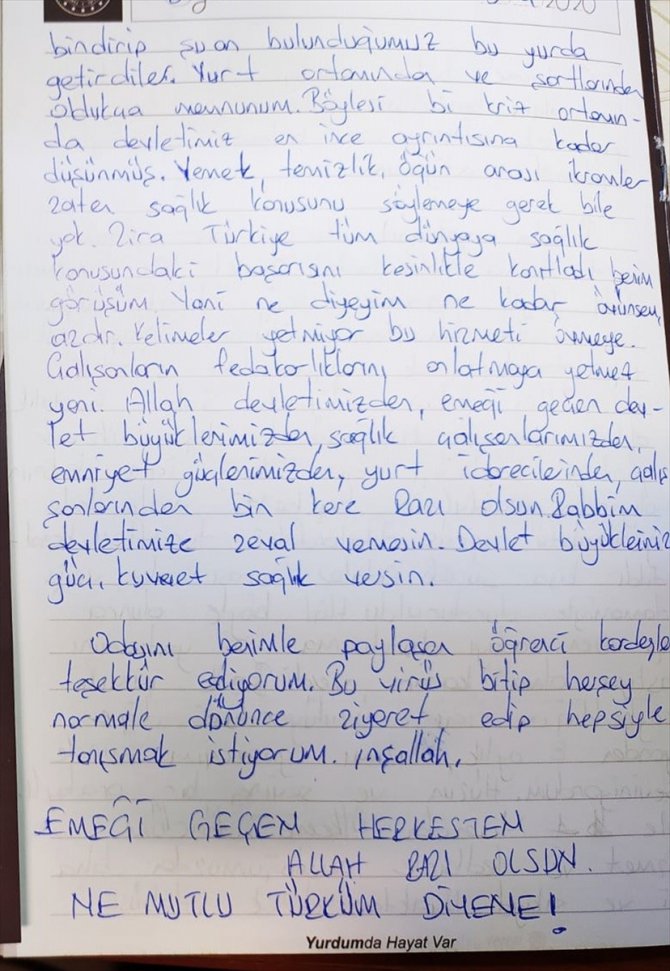 2020
bindirip şuan bulunduğumuz bu yurda
getirdiler. Yurt ortamından ve şartlarından
oldukça memnunum. Böylesi bi kriz ortamın-
da devletimiz en ince ayrıntısına kadar
düşünmüş. Yemek, temizlik, öğün arası ikramlar
zaten sağlık konusunu söylemeye gerek bile
yok. Zira Türkiye tüm dünyaya sağlık
konusundaki başarısını kesinlikle kanıtladı benim
görüşüm. Yani ne diyeyim ne kadar övünsem
azdır. Kelimeler yetmiyor bu hizmeti övmeye.
Çalışanların fedakarlıklarını anlatmaya yetmez
yani. Allah devletimizden, emeği geçen dev-
let büyüklerimizden, sağlık çalışanlarımızdan,
emniyet güçlerimizden, yurt idarecilerinden, çalış
şanlarından bin kere Razı olsun. Rabbim
devletimize zeval vermesin. Devlet büyüklerimiz
güç, kuvvet sağlık versin.
Odasını benimle paylaşan öğrenci kardeşle
teşekkür ediyorum. Bu virüs bitip herşey
normale dönünce ziyaret edip hepsiyle
tanışmak istiyorum. inşallah.
EMEĞİ GEÇEN HERKESTEN
ALLAH RAZI OLSUN.
NE MUTLU TÜRKÜM DİYENE!
Yurdumda Hayat Var